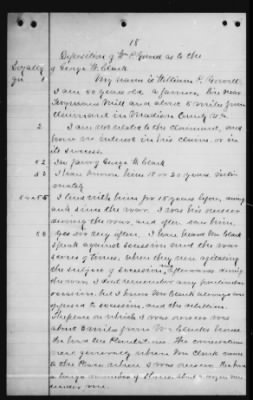 18
Deposition of Wm P. Gorrell as to the
Loyalty of George W. Clark.
Qu 1 My name is William P. Gorrell
I am 50 years old a farmer, live near
Mill and about 5 miles from
claimant in Madison County
2 I am not related to the claimant, and
have no interest in his claim, or in
its success.
52 In favor of George W. Clark
53 I have known him 18 or 20 years, inti-
mately
54 & 55 I lived with him for 15 years before, during
and since the war. I was his overseer
during the war, and often saw him.
58 Yes sir very often. I have heard Mr Clark
speak against secession and the war
scores of times, when they were agitating
the subject of secession, afterwards during
the war, I dont remember any particular
occasion, but I knew Mr Clark always was
opposed to secession, and the rebellion.
The place on which I was overseer was
about 3 miles from Mr Clarks house
he had two Plantations. The conversations
were generally when Mr Clark came
to the Place where I was overseer. He had
a large number of Slaves, about
under me.